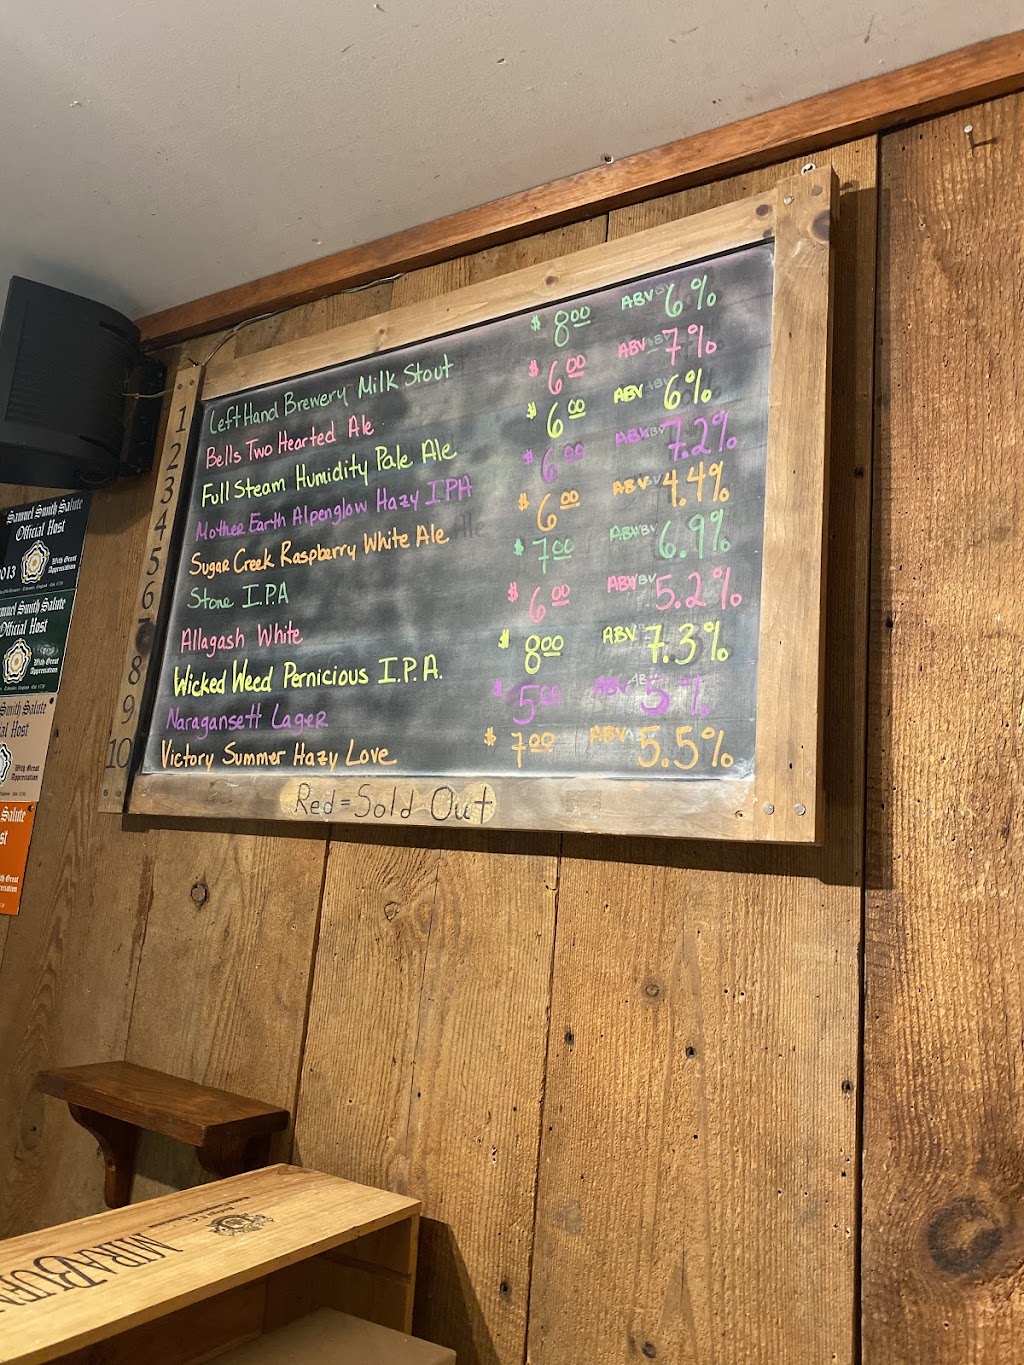 1 Left Hand Brewery Milk Stout $8.00 ABV 6%
2 Bells Two Hearted Ale $6.00 ABV 7%
3 Full Steam Humidity Pale Ale $6.00 ABV 6%
4 Mother Earth Alpenglow Hazy IPA $6.00 ABV 7.2%
5 Sugar Creek Raspberry White Ale $6.00 ABV 4.4%
6 Stone I.P.A $7.00 ABV 6.9%
Allagash White $6.00 ABV 5.2%
8 Wicked Weed Pernicious I.P.A. $8.00 ABV 7.3%
9 Naragansett Lager $5.00 ABV 5%
10 Victory Summer Hazy Love $7.00 ABV 5.5%
Red = Sold Out
Samuel Smith Salute
Official Host
2013
With Great
Appreciation
Samuel Smith Salute
Official Host
With Great
Appreciation
Smith Salute
Host
With Great
Appreciation
Salute